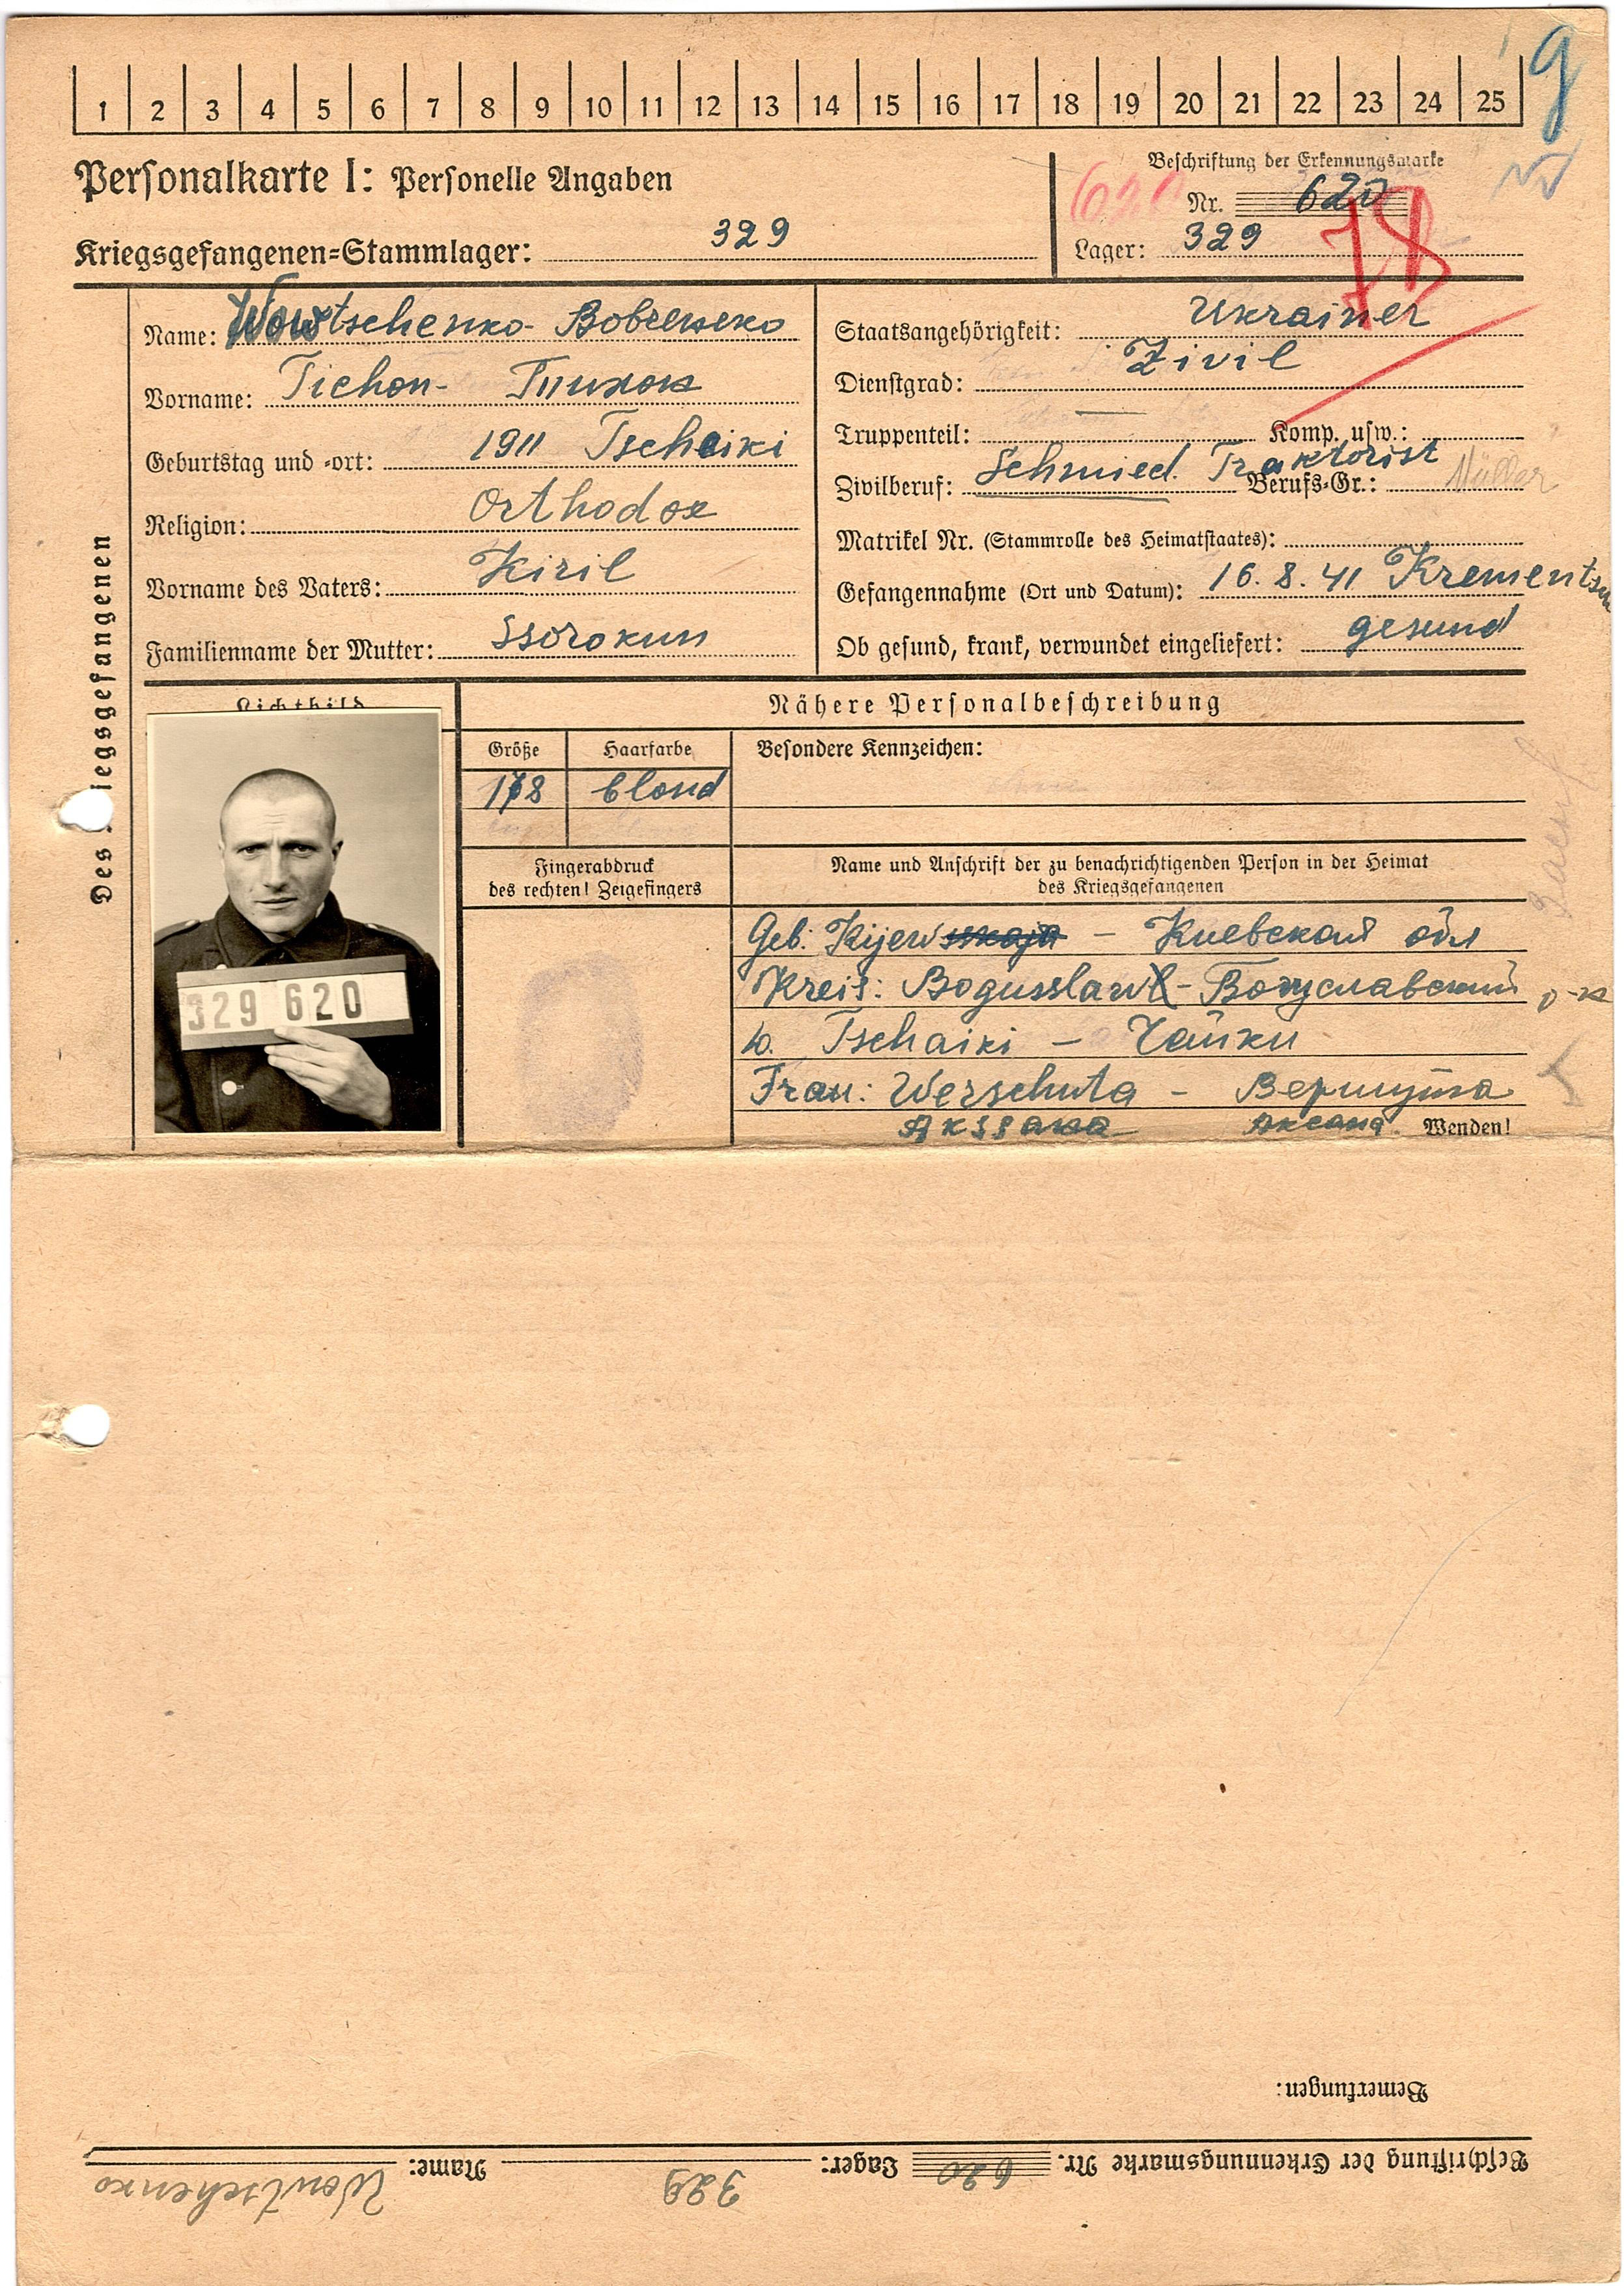 1 2 3 4 5 6 7 8 9 10 11 12 13 14 15 16 17 18 19 20 21 22 23 24 25
Personalkarte I: Personelle Angaben
Beschriftung der Erkennungsmarke
620 Nr. 620
Kriegsgefangenen-Stammlager: 329
Lager: 329
78
Des Kriegsgefangenen
Name: Wowtschenko -
Vorname: Tichon - Тихон
Geburtstag und -ort: 1911 Tschaiki
Religion: Orthodox
Vorname des Vaters: Kiril
Familienname der Mutter: Ssorokun
Staatsangehörigkeit: Ukrainer
Dienstgrad: Zivil
Truppenteil: — Komp. usw.:
Zivilberuf: Schmied. Traktorist Berufs-Gr.: Müller
Matrikel Nr. (Stammrolle des Heimatstaates):
Gefangennahme (Ort und Datum): 16. 8. 41 Krementsch
Ob gesund, krank, verwundet eingeliefert: gesund
Lichtbild
329 620
Nähere Personalbeschreibung
Größe Haarfarbe Besondere Kennzeichen:
178 blond
Fingerabdruck
des rechten! Zeigefingers
Name und Anschrift der zu benachrichtigenden Person in der Heimat
des Kriegsgefangenen
Geb. Kijewskaja - Киевской обл
Kreis: Bogusslaw - Богуславский р-н
w. Tschaiki - Чайки
Frau: Werschuta - Вершута
Akssana Аксана. Wenden!
Bemerkungen:
Beschriftung der Erkennungsmarke Nr. 620 Lager: 329 Name: Wowtschenko